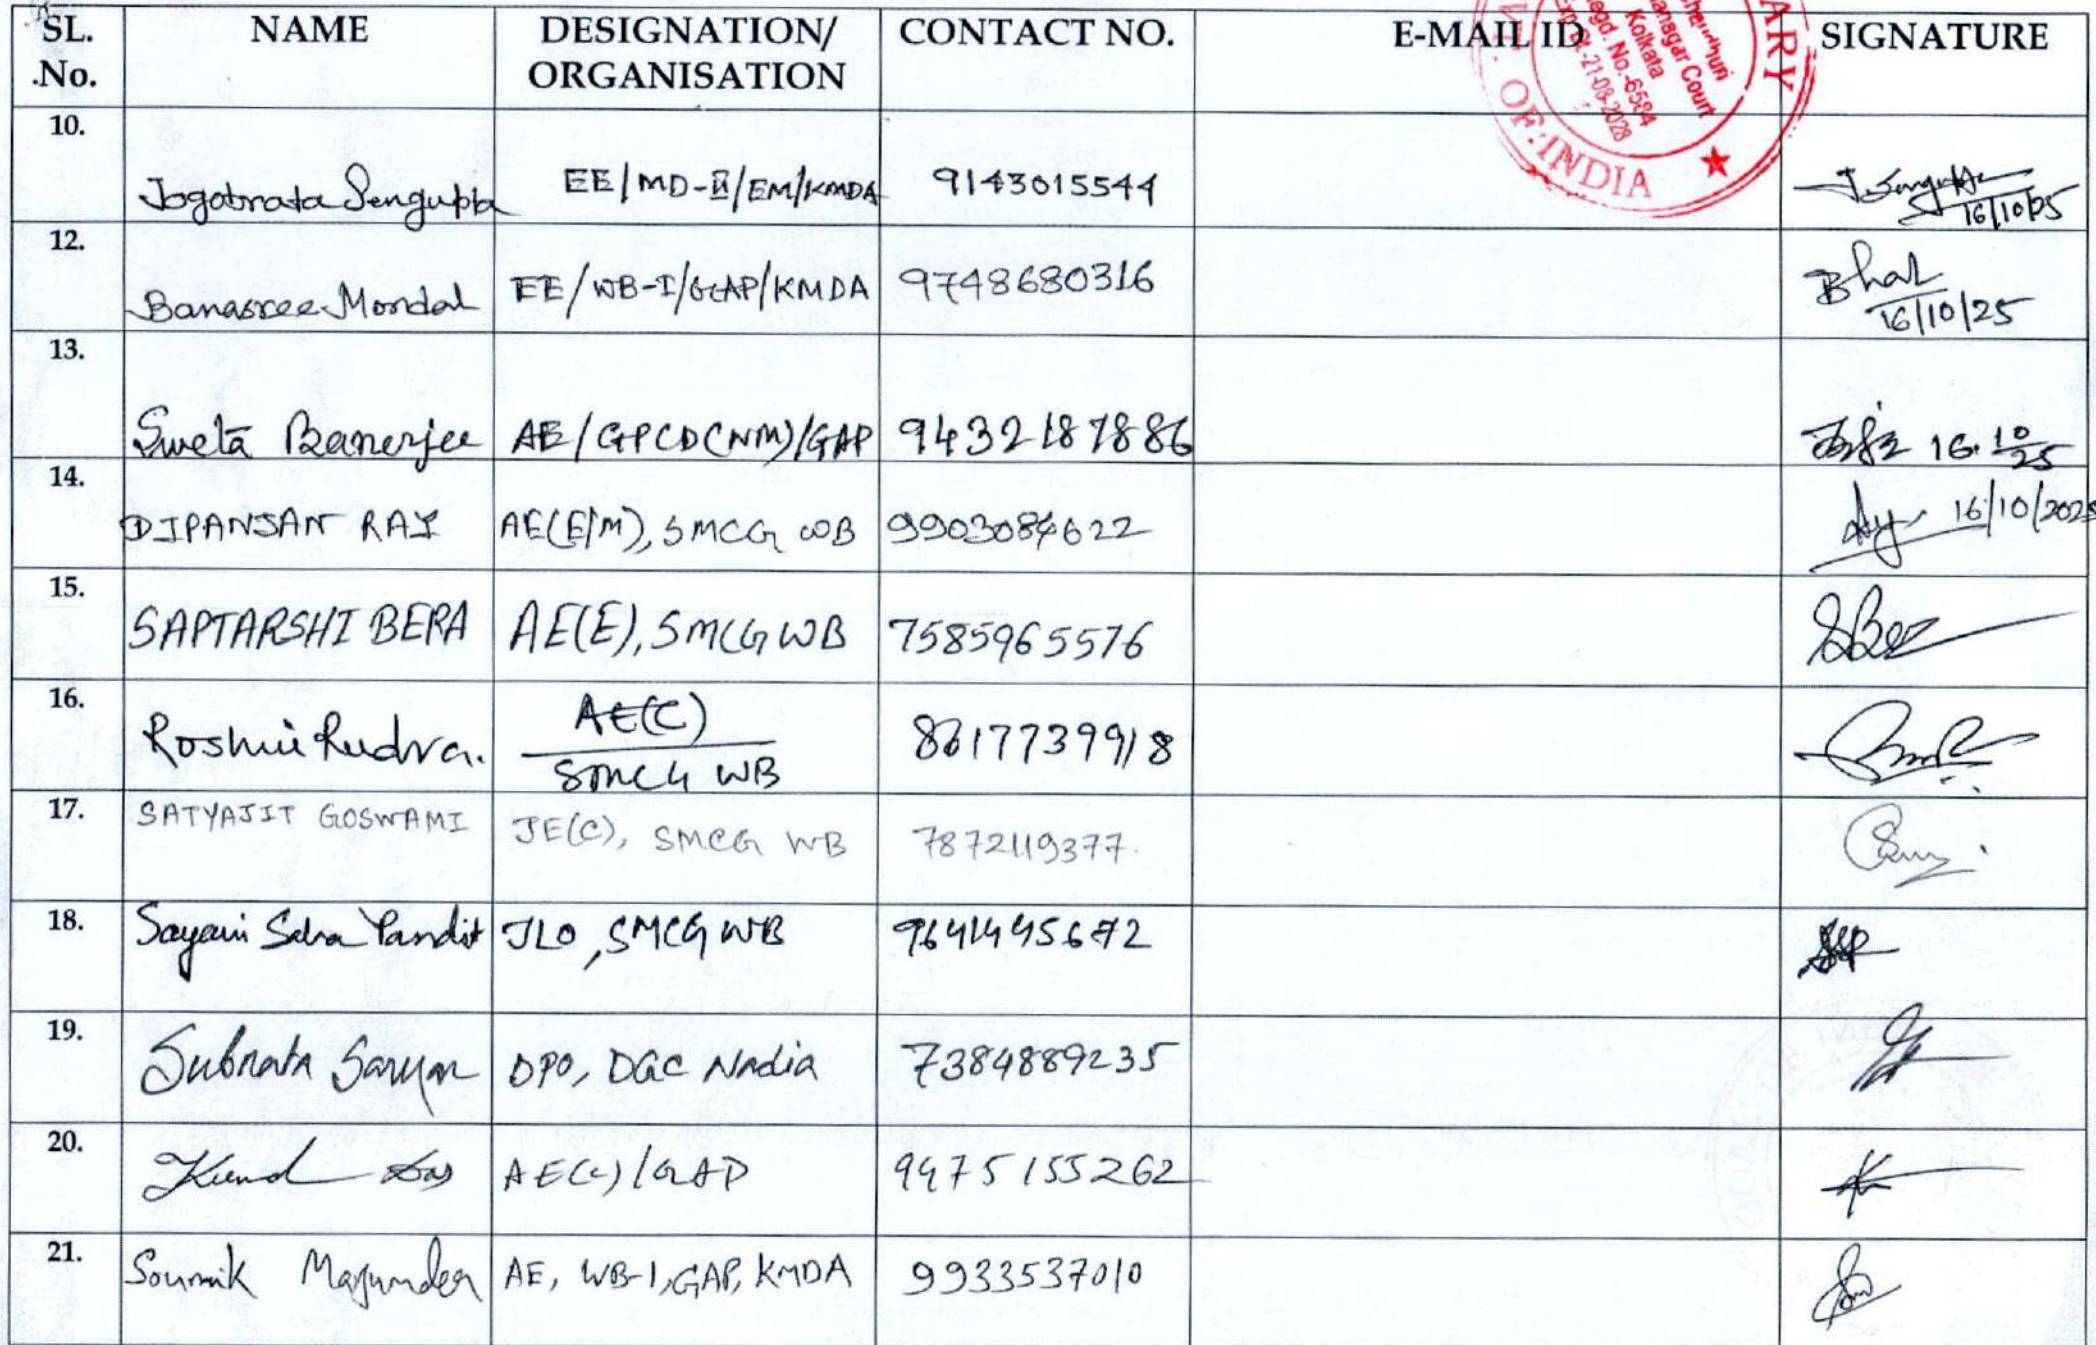 SL. .No. NAME DESIGNATION/ ORGANISATION CONTACT NO. E-MAIL ID SIGNATURE
Kolkata
Regd. No.-6584
Exp. Dt.-21-08-2028
OF INDIA
10. Jogabrata Sengupta EE/MD-II/EM/KMDA 9143015544 J. Sengupta 16/10/25
12. Banasree Mondal EE/WB-I/GAP/KMDA 9748680316 16/10/25
13. Sweta Banerjee AE/GPCD(NM)/GAP 9432187886 16.10 25
14. DIPANJAN RAY AE(E/M), SMCG WB 9903084622 16/10/2025
15. SAPTARSHI BERA AE(E), SMCG WB 7585965576 SBera
16. Roshni Rudra. AE(C) SMCG WB 8617739918
17. SATYAJIT GOSWAMI JE(C), SMCG WB 7872119377.
18. Sayani Saha Pandit JLO, SMCG WB 9641445672
19. Subrata Sarkar DPO, DGC Nadia 7384889235
20. Das AE(C)/GAP 9475155262
21. Soumik Majumder AE, WB-1, GAP, KMDA 9933537010